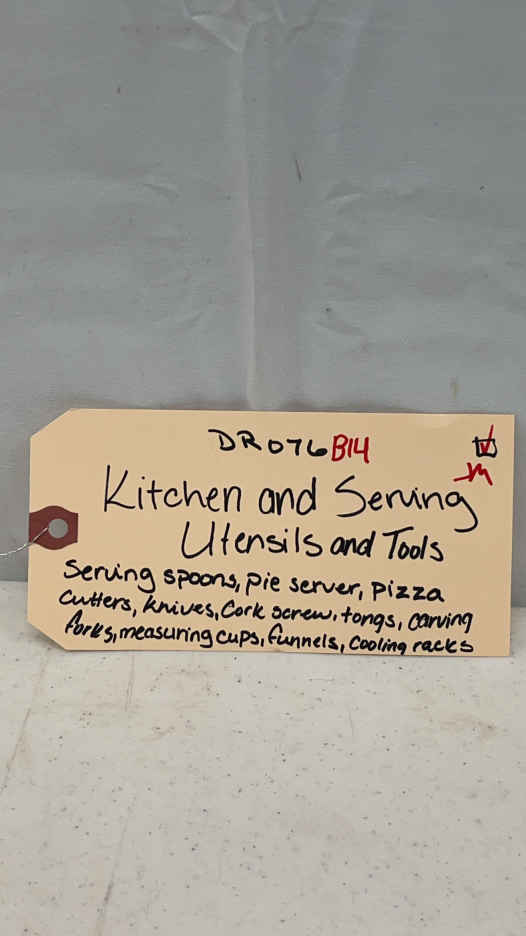 DR076 B14
Kitchen and Serving
Utensils and Tools
Serving spoons, pie server, pizza
cutters, knives, Cork screw, tongs, carving
forks, measuring cups, funnels, cooling racks